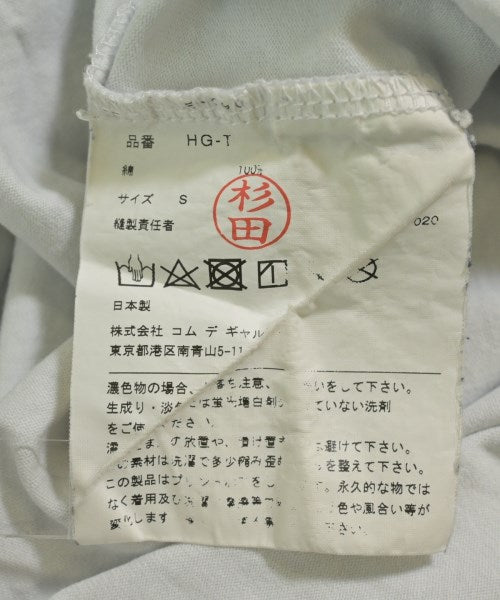 品番 HG-T
綿 100%
サイズ S
縫製責任者 杉田 020
日本製
株式会社 コム デ ギャル
東京都港区南青山5-11
濃色物の場合、 注意、 いをして下さい。
生成り・淡 は蛍光増白剤 ていない洗剤
をご使 ださい
の放置や、 け置き は避けて下さい。
の素材は洗濯で多少縮み歪 を整えて下さい。
この製品はプリ をし す。永久的な物では
なく着用及び 色や風合い等が
します 下さい。